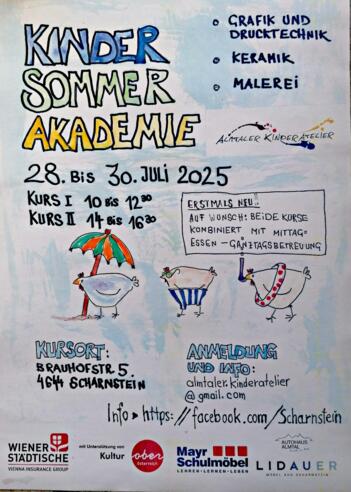 KINDER
SOMMER
AKADEMIE
o GRAFIK UND
DRUCKTECHNIK
o KERAMIK
o MALEREI
ALMTALER KINDERATELIER
28. BIS 30. JULI 2025
KURS I 10 BIS 12³⁰
KURS II 14 BIS 16³⁰
ERSTMALS NEU!!
AUF WUNSCH: BEIDE KURSE
KOMBINIERT MIT MITTAG=
ESSEN – GANZTAGSBETREUUNG
KURSORT:
BRAUHOFSTR. 5.
4644 SCHARNSTEIN
ANMELDUNG
UND INFO:
almtaler.kinderatelier
@gmail.com
Info ► https://facebook.com/Scharnstein
WIENER
STÄDTISCHE
VIENNA INSURANCE GROUP
mit Unterstützung von
Kultur
ober
österreich
Mayr
Schulmöbel
LEHREN·LERNEN·LEBEN
AUTOHAUS
ALMTAL
LIDAUER
MÖBEL AUS SCHARNSTEIN